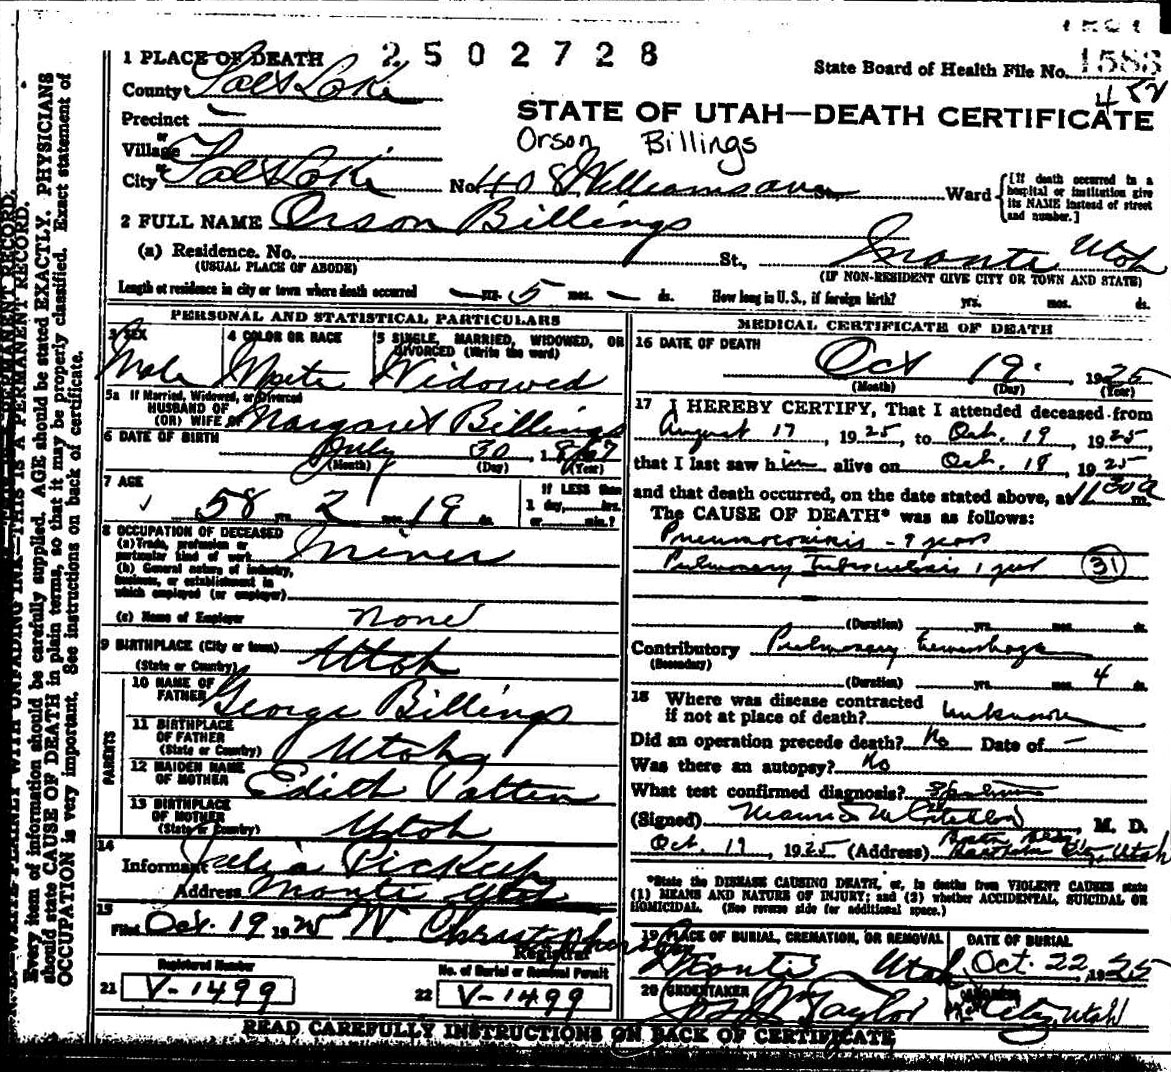 2502728
1 PLACE OF DEATH
State Board of Health File No. 1588
452
County Salt Lake
STATE OF UTAH—DEATH CERTIFICATE
Precinct —
Orson Billings
or
Village
or
City Salt Lake No. 408 Williams ave St., Ward
[If death occurred in a hospital or institution give its NAME instead of street and number.]
2 FULL NAME Orson Billings
(a) Residence. No. St., Manti Utah
(USUAL PLACE OF ABODE) (IF NON-RESIDENT GIVE CITY OR TOWN AND STATE)
Length of residence in city or town where death occurred — yrs. 5 mos. — ds. How long in U.S., if foreign birth? yrs. mos. ds.
PERSONAL AND STATISTICAL PARTICULARS
3 SEX Male
4 COLOR OR RACE White
5 SINGLE, MARRIED, WIDOWED, OR DIVORCED (Write the word) Widowed
5a If Married, Widowed, or Divorced
HUSBAND OF
(OR) WIFE OF Margaret Billings
6 DATE OF BIRTH July 30 1867
(Month) (Day) (Year)
7 AGE 58 yrs. 2 mos. 19 ds.
If LESS than
1 day, hrs.
or min.?
8 OCCUPATION OF DECEASED
(a) Trade, profession or
particular kind of work Miner
(b) General nature of industry,
business, or establishment in
which employed (or employer)
(c) Name of Employer None
9 BIRTHPLACE (City or town)
(State or Country) Utah
PARENTS
10 NAME OF
FATHER George Billings
11 BIRTHPLACE
OF FATHER
(State or Country) Utah
12 MAIDEN NAME
OF MOTHER Edith Patten
13 BIRTHPLACE
OF MOTHER
(State or Country) Utah
14
Informant Julia Pickup
Address Manti Utah
15
Filed Oct. 19 1925 W Christopherson
Registrar
Registered Number
21 V-1499
No. of Burial or Removal Permit
22 V-1499
MEDICAL CERTIFICATE OF DEATH
16 DATE OF DEATH
Oct 19. 1925
(Month) (Day) (Year)
17 I HEREBY CERTIFY, That I attended deceased from
August 17, 1925, to Oct. 19, 1925,
that I last saw him alive on Oct. 18, 1925
and that death occurred, on the date stated above, at 11 30 a m.
The CAUSE OF DEATH* was as follows:
Pneumoconiosis - 7 years
Pulmonary Tuberculosis 1 year (31)
(Duration) yrs. mos. ds.
Contributory Pulmonary hemorrhage
(Secondary)
(Duration) yrs. mos. 4 ds.
18 Where was disease contracted
if not at place of death? Unknown
Did an operation precede death? No Date of —
Was there an autopsy? No
What test confirmed diagnosis?
(Signed) M. D.
Oct. 19, 1925 (Address) Boston Bldg. Utah
*State the DISEASE CAUSING DEATH, or, in deaths from VIOLENT CAUSES state
(1) MEANS AND NATURE OF INJURY; and (2) whether ACCIDENTAL, SUICIDAL OR
HOMICIDAL. (See reverse side for additional space.)
19 PLACE OF BURIAL, CREMATION, OR REMOVAL
Manti Utah
DATE OF BURIAL
Oct. 22 1925
20 UNDERTAKER
Jos Wm Taylor
ADDRESS
City, Utah
READ CAREFULLY INSTRUCTIONS ON BACK OF CERTIFICATE
WRITE PLAINLY WITH UNFADING INK—THIS IS A PERMANENT RECORD.
Every item of information should be carefully supplied. AGE should be stated EXACTLY. PHYSICIANS
should state CAUSE OF DEATH in plain terms, so that it may be properly classified. Exact statement of
OCCUPATION is very important. See instructions on back of certificate.